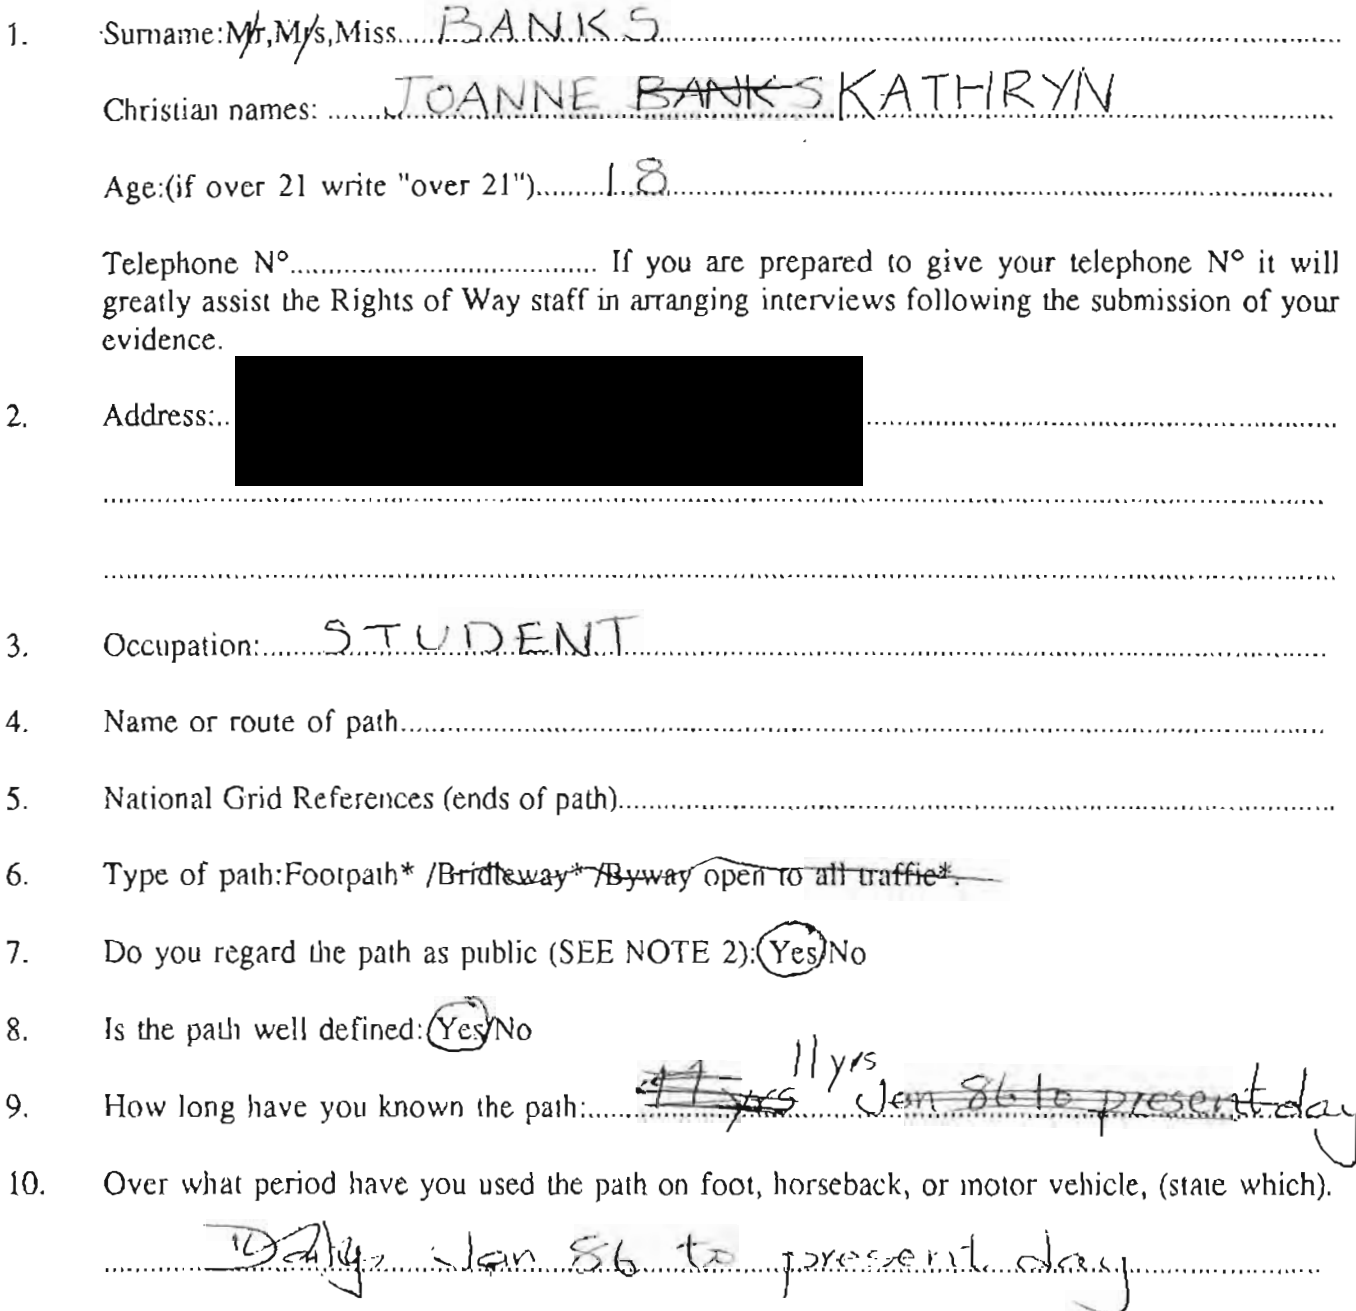 1. Surname:Mr,Mrs,Miss.....BANKS
Christian names: ......JOANNE BANKS KATHRYN
Age:(if over 21 write "over 21")........18
Telephone N°...................................... If you are prepared to give your telephone N° it will
greatly assist the Rights of Way staff in arranging interviews following the submission of your
evidence.
2. Address:..
3. Occupation:.......STUDENT
4. Name or route of path
5. National Grid References (ends of path)
6. Type of path:Footpath* /Bridleway* /Byway open to all traffic*.
7. Do you regard the path as public (SEE NOTE 2):Yes/No
8. Is the path well defined:Yes/No
11 yrs
9. How long have you known the path:...... yrs Jan 86 to present day
10. Over what period have you used the path on foot, horseback, or motor vehicle, (state which).
Daily, Jan 86 to present day